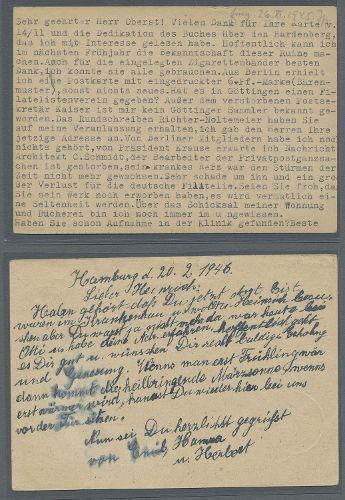 Sehr geehrter Herr Oberst! Vieles Dank für Ihre Karte v.
14/11 und die Dedikation des Buches über den Hardenberg,
das ich mit Interesse gelesen habe. Hoffentlich kann ich
im nächsten Frühjahr die bekanntschaft dieser Ruine ma-
chen. Auch für die eingelegten Zigarettenbänder besten
Dank, ich konnte sie alle gebrauchen. Aus Berlin erhielt
ich eine Postkarte mit eingedruckter 6.rf.-Marke (Ähren-
muster), sonst nichts neues. Hat es in Göttingen einen Fi-
latelistenverein gegeben? Außer dem verstorbenen Postse-
kretär Kaiser ist mir kein Göttinger Sammler bekannt ge-
worden. Das Rundschreiben Richter-Noltemeier haben Sie
auf meine Veranlassung erhalten, ich gab den Herren Ihre
jetzige Adresse an. Von Berliner Mitgliedern habe ich noch
nichts gehört, von Präsident Krause erwarte ich Nachricht
Architekt C. Schmidt, der Bearbeiter der Privatpostganzsa-
chen ist gestorben, sein krankes Herz war den Stürmen der
Zeit nicht mehr gewachsen. Sehr schade um ihn und ein gro-
ßer Verlust für die deutsche Filatelie. Seien Sie froh, daß
Sie sein Werk noch erworben haben, es wird vermutlich ei-
ne Seltenheit werden. Über das Schicksal meiner Wohnung
und Bücherei bin ich noch immer im ungewissen.
Haben Sie schon Aufnahme in der Klinik gefunden? Beste
Hamburg d. 20. 2. 1946.
Lieber Heinrich!
Haben gehört daß Du jetzt
waren im Krankenhaus u wollten Heinrich besu-
chen aber Du warst ja nicht mehr da, war heute bei
Otti u habe Deine Adr. erfahren, hoffentlich geht
es Dir gut u. wünschen Dir recht baldige Erholung
und Genesung. Wenn man erst Frühling wär
dann kommt die heilbringende Märzsonne, wenns
erst wärmer wird, kannst Du wieder hier bei uns
vor der Tür sitzen.
Nun sei Du herzlichst gegrüßt
von Emil Hanna
u. Herbert